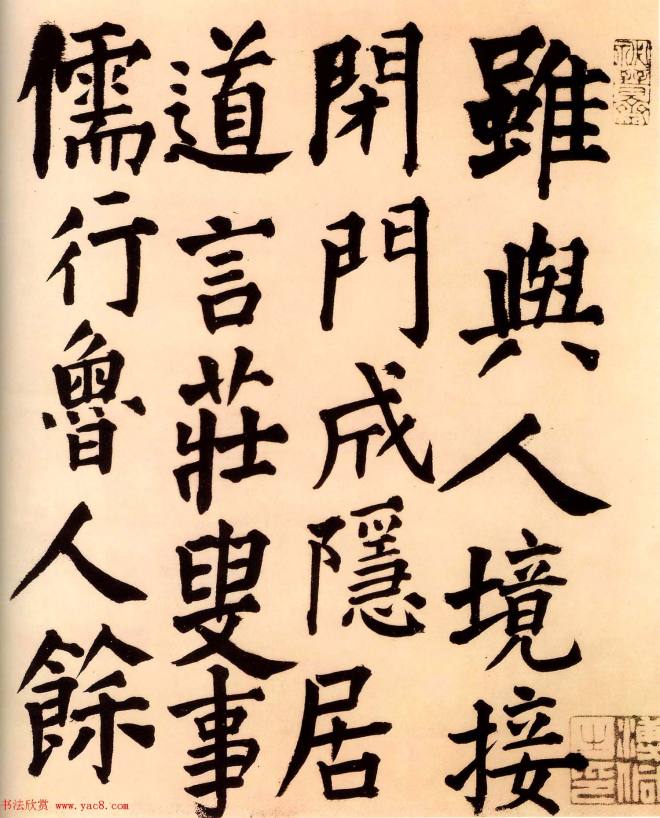 雖與人境接
閉門成隱居
道言莊叟事
儒行魯人餘
书法欣赏 www.yac8.com